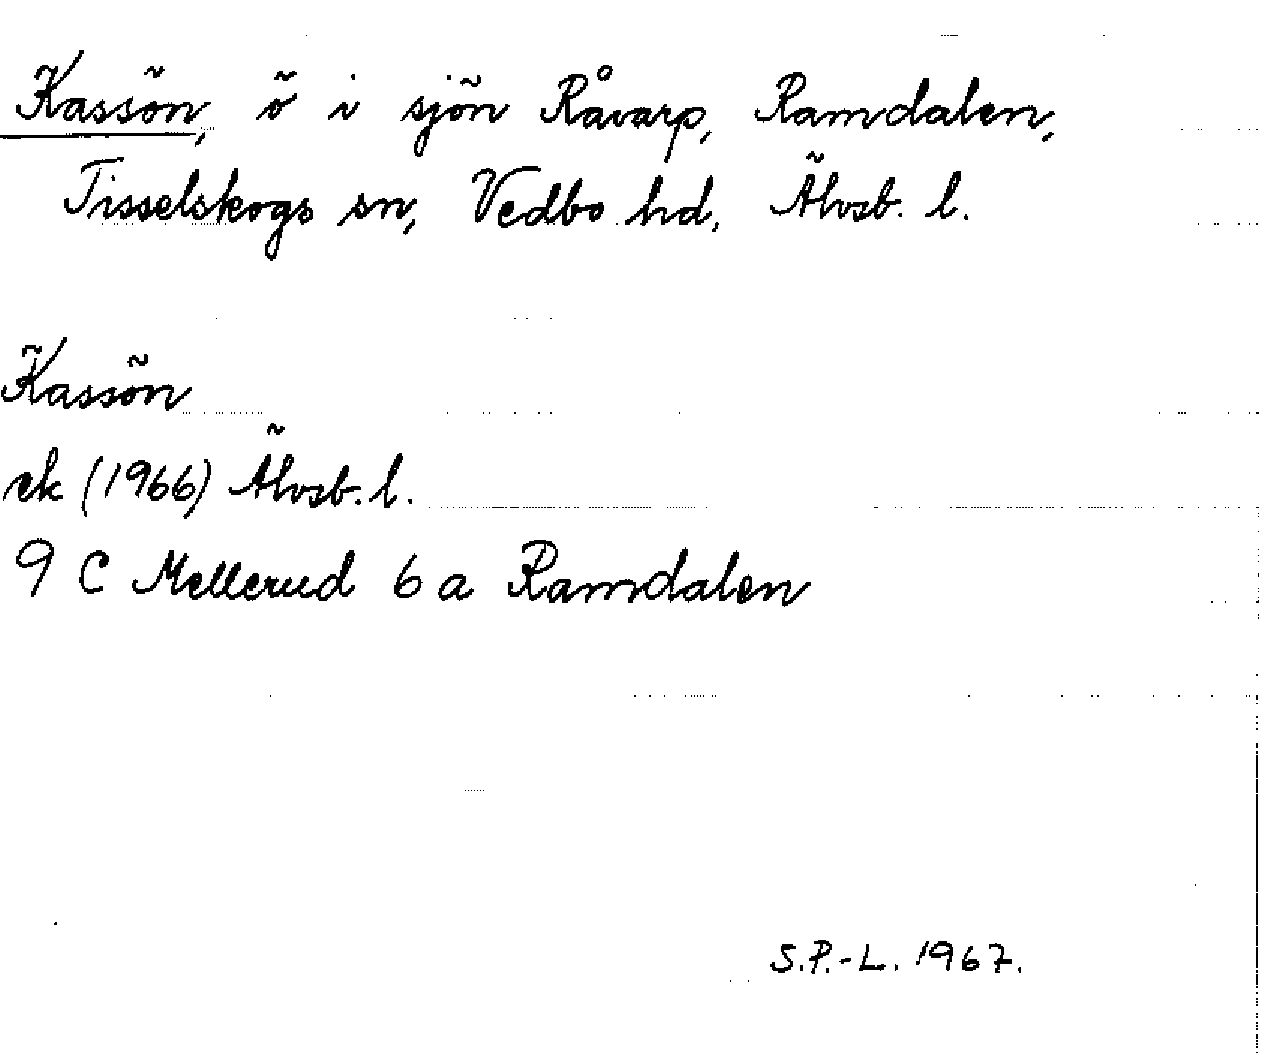 Kassön, ö i sjön Råvarp, Ramdalen,
Tisselskogs sn, Vedbo hd, Älvsb. l.
Kassön
ek (1966) Älvsb. l.
9 C Mellerud 6 a Ramdalen
S.P.-L. 1967.